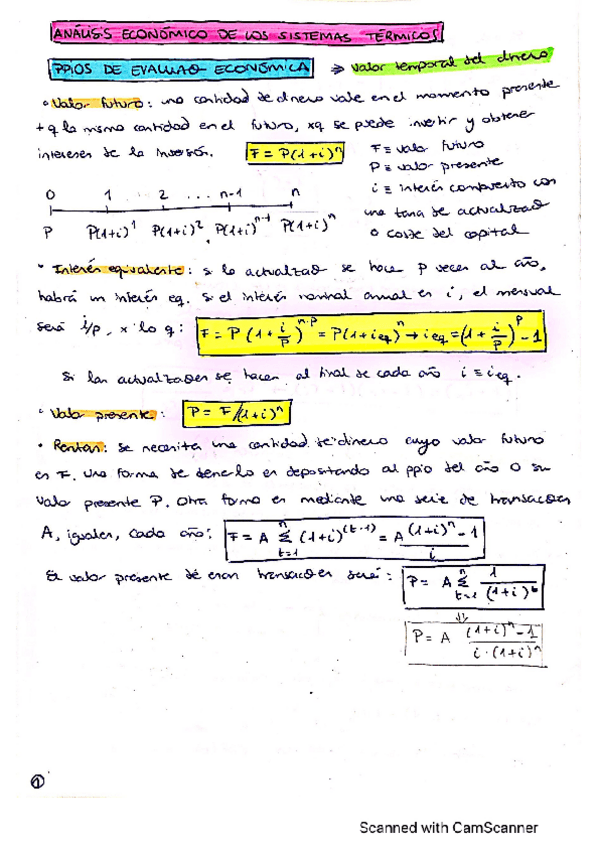 ANÁLISIS ECONÓMICO DE LOS SISTEMAS TÉRMICOS
PPIOS DE EVALUAO ECONÓMICA ⇒ Valor temporal del dinero
• Valor futuro: una cantidad de dinero vale en el momento presente
+ q la misma cantidad en el futuro, xq se puede invertir y obtener
intereses de la inversión. F = P(1+i)^n F ≡ valor futuro
P ≡ valor presente
i ≡ interés compuesto con
una tasa de actualizao
o coste del capital
0 1 2 ... n-1 n
P P(1+i)^1 P(1+i)^2 P(1+i)^n-1 P(1+i)^n
• Interés equivalente: si la actualizao se hace p veces al año,
habrá un interés eq. Si el interés nominal anual es i, el mensual
será i/p, x lo q: F = P (1 + i/p)^n·p = P(1+ieq)^n → ieq = (1 + i/p)^p - 1
Si las actualizaoes se hacen al final de cada año i ≡ ieq.
• Valor presente: P = F/(1+i)^n
• Rentas: se necesita una cantidad de dinero cuyo valor futuro
es F. Una forma de tenerlo es depositando al ppio del año 0 su
valor presente P. Otra forma es mediante una serie de transacoes
A, iguales, cada año: F = A Σ t=1 n (1+i)^(t-1) = A (1+i)^n - 1 / i
El valor presente de esas transacoes será: P = A Σ t=1 n 1/(1+i)^t
⇓
P = A (1+i)^n - 1 / i·(1+i)^n
1
Scanned with CamScanner